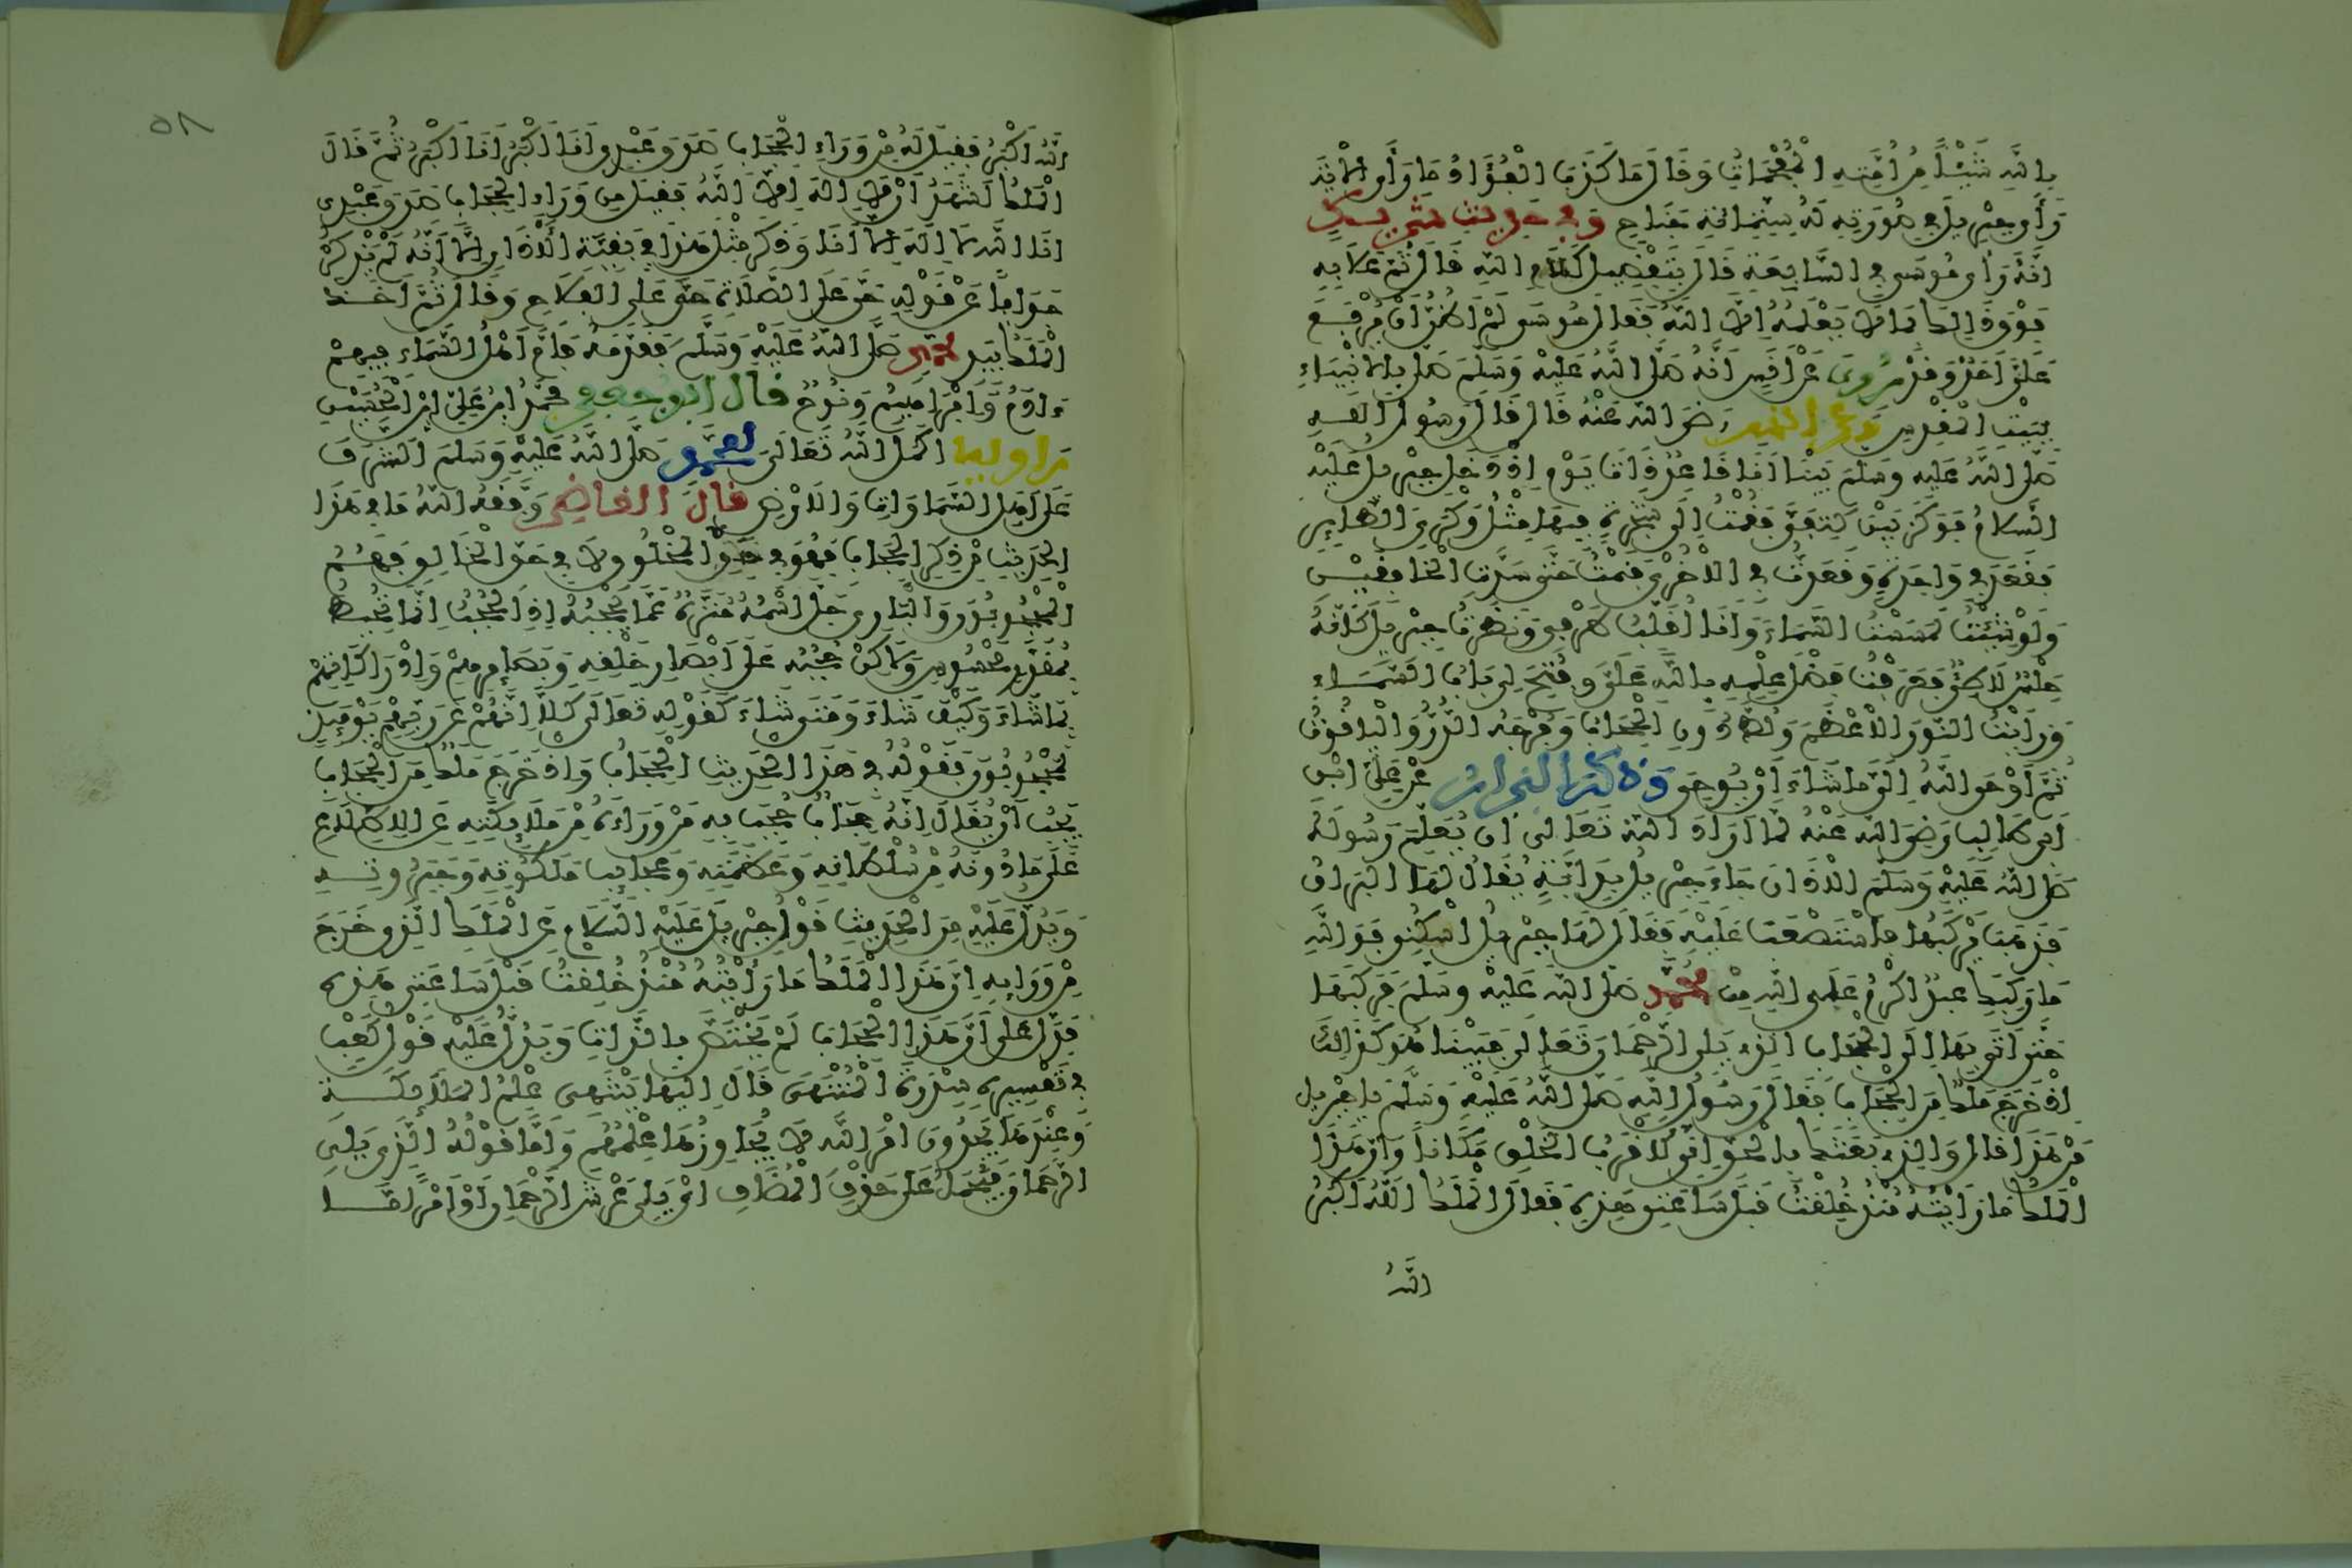 بِاللَّهِ شَيْئًا مِنْ أُمَّتِهِ الْمُقْحِمَاتُ وَقَالَ مَا كَذَبَ الْفُؤَادُ مَا رَأَى الْآيَة
رَأَى جِبْرِيلَ فِي صُورَتِهِ لَهُ سِتُّمِائَةِ جَنَاحٍ وَفِي حَدِيثِ شَرِيكٍ
أَنَّهُ رَأَى مُوسَى فِي السَّابِعَةِ قَالَ بِتَفْضِيلِ كَلَامِ اللَّهِ قَالَ ثُمَّ عَلَا بِهِ
فَوْقَ ذَلِكَ بِمَا لَا يَعْلَمُهُ إِلَّا اللَّهُ فَقَالَ مُوسَى لَمْ أَظُنَّ أَنْ يُرْفَعَ
عَلَيَّ أَحَدٌ وَقَدْ رُوِيَ عَنْ أَنَسٍ أَنَّهُ صَلَّى اللَّهُ عَلَيْهِ وَسَلَّمَ صَلَّى بِالْأَنْبِيَاءِ
بِبَيْتِ الْمَقْدِسِ وَعَنْ أَنَسٍ رَضِيَ اللَّهُ عَنْهُ قَالَ قَالَ رَسُولُ اللَّهِ
صَلَّى اللَّهُ عَلَيْهِ وَسَلَّمَ بَيْنَا أَنَا قَاعِدٌ ذَاتَ يَوْمٍ إِذْ دَخَلَ جِبْرِيلُ عَلَيْهِ
السَّلَامُ فَوَكَزَ بَيْنَ كَتِفَيَّ فَقُمْتُ إِلَى شَجَرَةٍ فِيهَا مِثْلُ وَكْرَيِ الطَّائِرِ
فَقَعَدَ فِي وَاحِدَةٍ وَقَعَدْتُ فِي الْأُخْرَى فَنَمَتْ حَتَّى سَدَّتِ الْخَافِقَيْنِ
وَلَوْ شِئْتُ لَمَسَسْتُ السَّمَاءَ وَأَنَا أُقَلِّبُ طَرْفِي وَنَظَرْتُ جِبْرِيلَ كَأَنَّهُ
حِلْسٌ لَاطِئٌ فَعَرَفْتُ فَضْلَ عِلْمِهِ بِاللَّهِ عَلَيَّ وَفُتِحَ لِي بَابُ السَّمَاءِ
وَرَأَيْتُ النُّورَ الْأَعْظَمَ وَلُطَّ دُونِي الْحِجَابُ وَفُرَجُهُ الدُّرُّ وَالْيَاقُوتُ
ثُمَّ أَوْحَى اللَّهُ إِلَيَّ مَا شَاءَ أَنْ يُوحِيَ وَذَكَرَ الْبَزَّارُ عَنْ عَلِيِّ ابْنِ
أَبِي طَالِبٍ رَضِيَ اللَّهُ عَنْهُ لَمَّا أَرَادَ اللَّهُ تَعَالَى أَنْ يُعَلِّمَ رَسُولَهُ
صَلَّى اللَّهُ عَلَيْهِ وَسَلَّمَ الْأَذَانَ جَاءَ جِبْرِيلُ بِدَابَّةٍ يُقَالُ لَهَا الْبُرَاقُ
فَذَهَبَ يَرْكَبُهَا فَاسْتَصْعَبَتْ عَلَيْهِ فَقَالَ لَهَا جِبْرِيلُ اسْكُنِي فَوَاللَّهِ
مَا رَكِبَكِ عَبْدٌ أَكْرَمُ عَلَى اللَّهِ مِنْ مُحَمَّدٍ صَلَّى اللَّهُ عَلَيْهِ وَسَلَّمَ فَرَكِبَهَا
حَتَّى أَتَى بِهَا إِلَى الْحِجَابِ الَّذِي يَلِي الرَّحْمَانَ تَعَالَى فَبَيْنَمَا هُوَ كَذَلِكَ
إِذْ خَرَجَ مَلَكٌ مِنَ الْحِجَابِ فَقَالَ رَسُولُ اللَّهِ صَلَّى اللَّهُ عَلَيْهِ وَسَلَّمَ يَا جِبْرِيلُ
مَنْ هَذَا قَالَ وَالَّذِي بَعَثَكَ بِالْحَقِّ إِنِّي لَأَقْرَبُ الْخَلْقِ مَكَانًا وَإِنَّ هَذَا
الْمَلَكَ مَا رَأَيْتُهُ مُنْذُ خُلِقْتُ قَبْلَ سَاعَتِي هَذِهِ فَقَالَ الْمَلَكُ اللَّهُ أَكْبَرُ
اللَّهُ
٥٨
اللَّهُ أَكْبَرُ فَقِيلَ لَهُ مِنْ وَرَاءِ الْحِجَابِ صَدَقَ عَبْدِي أَنَا أَكْبَرُ أَنَا أَكْبَرُ ثُمَّ قَالَ
الْمَلَكُ أَشْهَدُ أَنْ لَا إِلَهَ إِلَّا اللَّهُ فَقِيلَ مِنْ وَرَاءِ الْحِجَابِ صَدَقَ عَبْدِي
أَنَا اللَّهُ لَا إِلَهَ إِلَّا أَنَا وَذَكَرَ مِثْلَ هَذَا فِي بَقِيَّةِ الْأَذَانِ إِلَّا أَنَّهُ لَمْ يَذْكُرْ
جَوَابًا عَنْ قَوْلِهِ حَيَّ عَلَى الصَّلَاةِ حَيَّ عَلَى الْفَلَاحِ وَقَالَ ثُمَّ أَخَذَ
الْمَلَكُ بِيَدِ مُحَمَّدٍ صَلَّى اللَّهُ عَلَيْهِ وَسَلَّمَ فَقَدَّمَهُ فَأَمَّ أَهْلَ السَّمَاءِ فِيهِمْ
ءَادَمُ وَإِبْرَاهِيمُ وَنُوحٌ قَالَ أَبُو جَعْفَرٍ مُحَمَّدُ ابْنُ عَلِيِّ ابْنِ الْحُسَيْنِ
رَاوِيهِ أَكْمَلَ اللَّهُ تَعَالَى لِمُحَمَّدٍ صَلَّى اللَّهُ عَلَيْهِ وَسَلَّمَ الشَّرَفَ
عَلَى أَهْلِ السَّمَاوَاتِ وَالْأَرْضِ قَالَ الْقَاضِي وَفَّقَهُ اللَّهُ مَا فِي هَذَا
الْحَدِيثِ مِنْ ذِكْرِ الْحِجَابِ فَهُوَ فِي حَقِّ الْمَخْلُوقِ لَا فِي حَقِّ الْخَالِقِ فَهُمُ
الْمَحْجُوبُونَ وَالْبَارِي جَلَّ اسْمُهُ مُنَزَّهٌ عَمَّا يَحْجُبُهُ إِذِ الْحُجُبُ إِنَّمَا تُحِيطُ
بِمُقَدَّرٍ مَحْسُوسٍ وَلَكِنْ حُجُبُهُ عَلَى أَبْصَارِ خَلْقِهِ وَبَصَائِرِهِمْ وَإِدْرَاكَاتِهِمْ
بِمَا شَاءَ وَكَيْفَ شَاءَ وَمَتَى شَاءَ كَقَوْلِهِ تَعَالَى كَلَّا إِنَّهُمْ عَنْ رَبِّهِمْ يَوْمَئِذٍ
لَمَحْجُوبُونَ فَقَوْلُهُ فِي هَذَا الْحَدِيثِ الْحِجَابُ وَإِذْ خَرَجَ مَلَكٌ مِنَ الْحِجَابِ
يَجِبُ أَنْ يُقَالَ إِنَّهُ حِجَابٌ حُجِبَ بِهِ مَنْ وَرَاءَهُ مِنْ مَلَائِكَتِهِ عَنِ الِاطِّلَاعِ
عَلَى مَا دُونَهُ مِنْ سُلْطَانِهِ وَعَظَمَتِهِ وَعَجَائِبِ مَلَكُوتِهِ وَجَبَرُوتِهِ
وَيَدُلُّ عَلَيْهِ مِنَ الْحَدِيثِ قَوْلُ جِبْرِيلَ عَلَيْهِ السَّلَامُ عَنِ الْمَلَكِ الَّذِي خَرَجَ
مِنْ وَرَائِهِ إِنَّ هَذَا الْمَلَكَ مَا رَأَيْتُهُ مُنْذُ خُلِقْتُ قَبْلَ سَاعَتِي هَذِهِ
فَدَلَّ عَلَى أَنَّ هَذَا الْحِجَابَ لَمْ يَخْتَصَّ بِالذَّاتِ وَيَدُلُّ عَلَيْهِ قَوْلُ كَعْبٍ
فِي تَفْسِيرِهِ سِدْرَةَ الْمُنْتَهَى قَالَ إِلَيْهَا يَنْتَهِي عِلْمُ الْمَلَائِكَةِ
وَعِنْدَهَا يَجِدُونَ أَمْرَ اللَّهِ لَا يُجَاوِزُهَا عِلْمُهُمْ وَأَمَّا قَوْلُهُ الَّذِي يَلِي
الرَّحْمَانَ فَيُحْمَلُ عَلَى حَذْفِ الْمُضَافِ أَيْ يَلِي عَرْشَ الرَّحْمَانِ أَوْ أَمْرًا مَّا